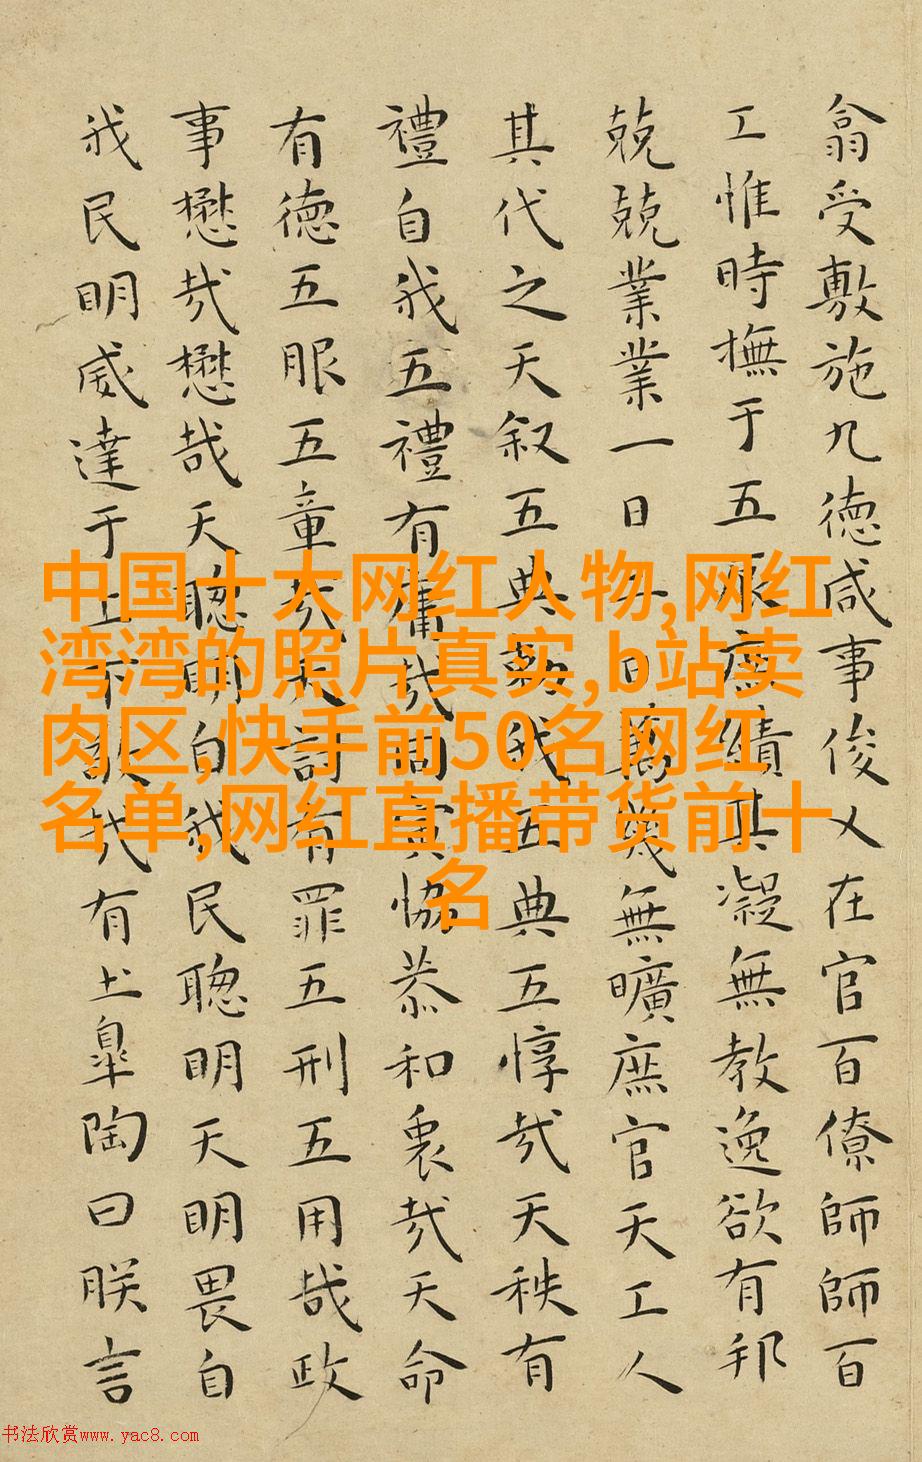 翕受敷施九德咸事俊乂在官百僚師師百
工惟時撫于五辰庶績其凝無教逸欲有邦
兢兢業業一日二日萬幾無曠庶官天工人
其代之天叙五典勑我五典五惇哉天秩有
禮自我五禮有庸哉同寅恊恭和衷哉天命
有德五服五章哉天討有罪五刑五用哉政
事懋哉懋哉天聰明自我民聰明天明畏自
我民明威達于上下敬哉有土皐陶曰朕言
中国十大网红人物,网红
湾湾的照片真实,b站卖
肉区,快手前50名网红
名单,网红直播带货前十
名
书法欣赏www.yac8.com